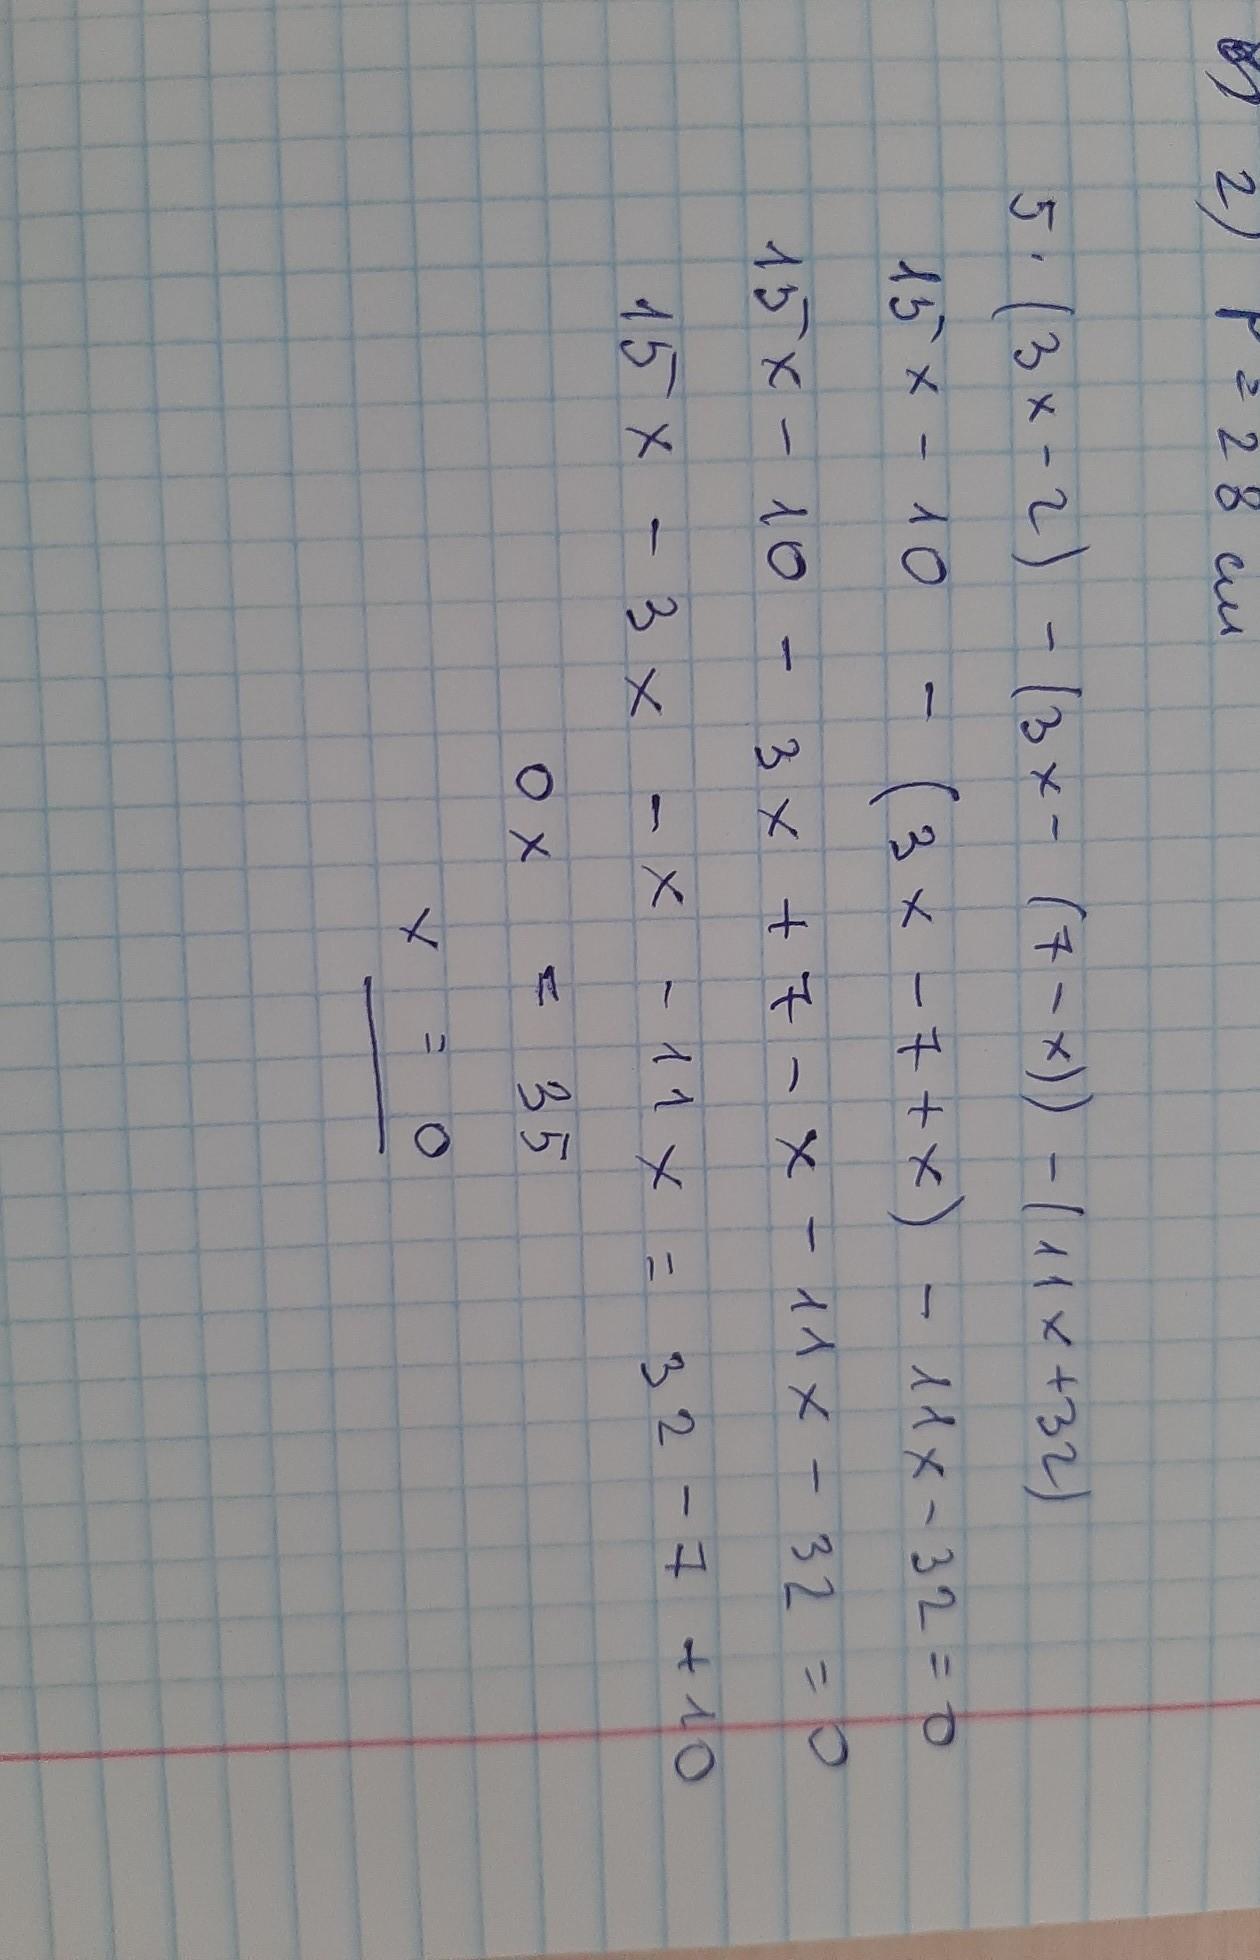 2) P = 28 см
5 · (3x - 2) - (3x - (7 - x)) - (11x + 32)
15x - 10 - (3x - 7 + x) - 11x - 32 = 0
15x - 10 - 3x + 7 - x - 11x - 32 = 0
15x - 3x - x - 11x = 32 - 7 + 10
0x = 35
x = 0